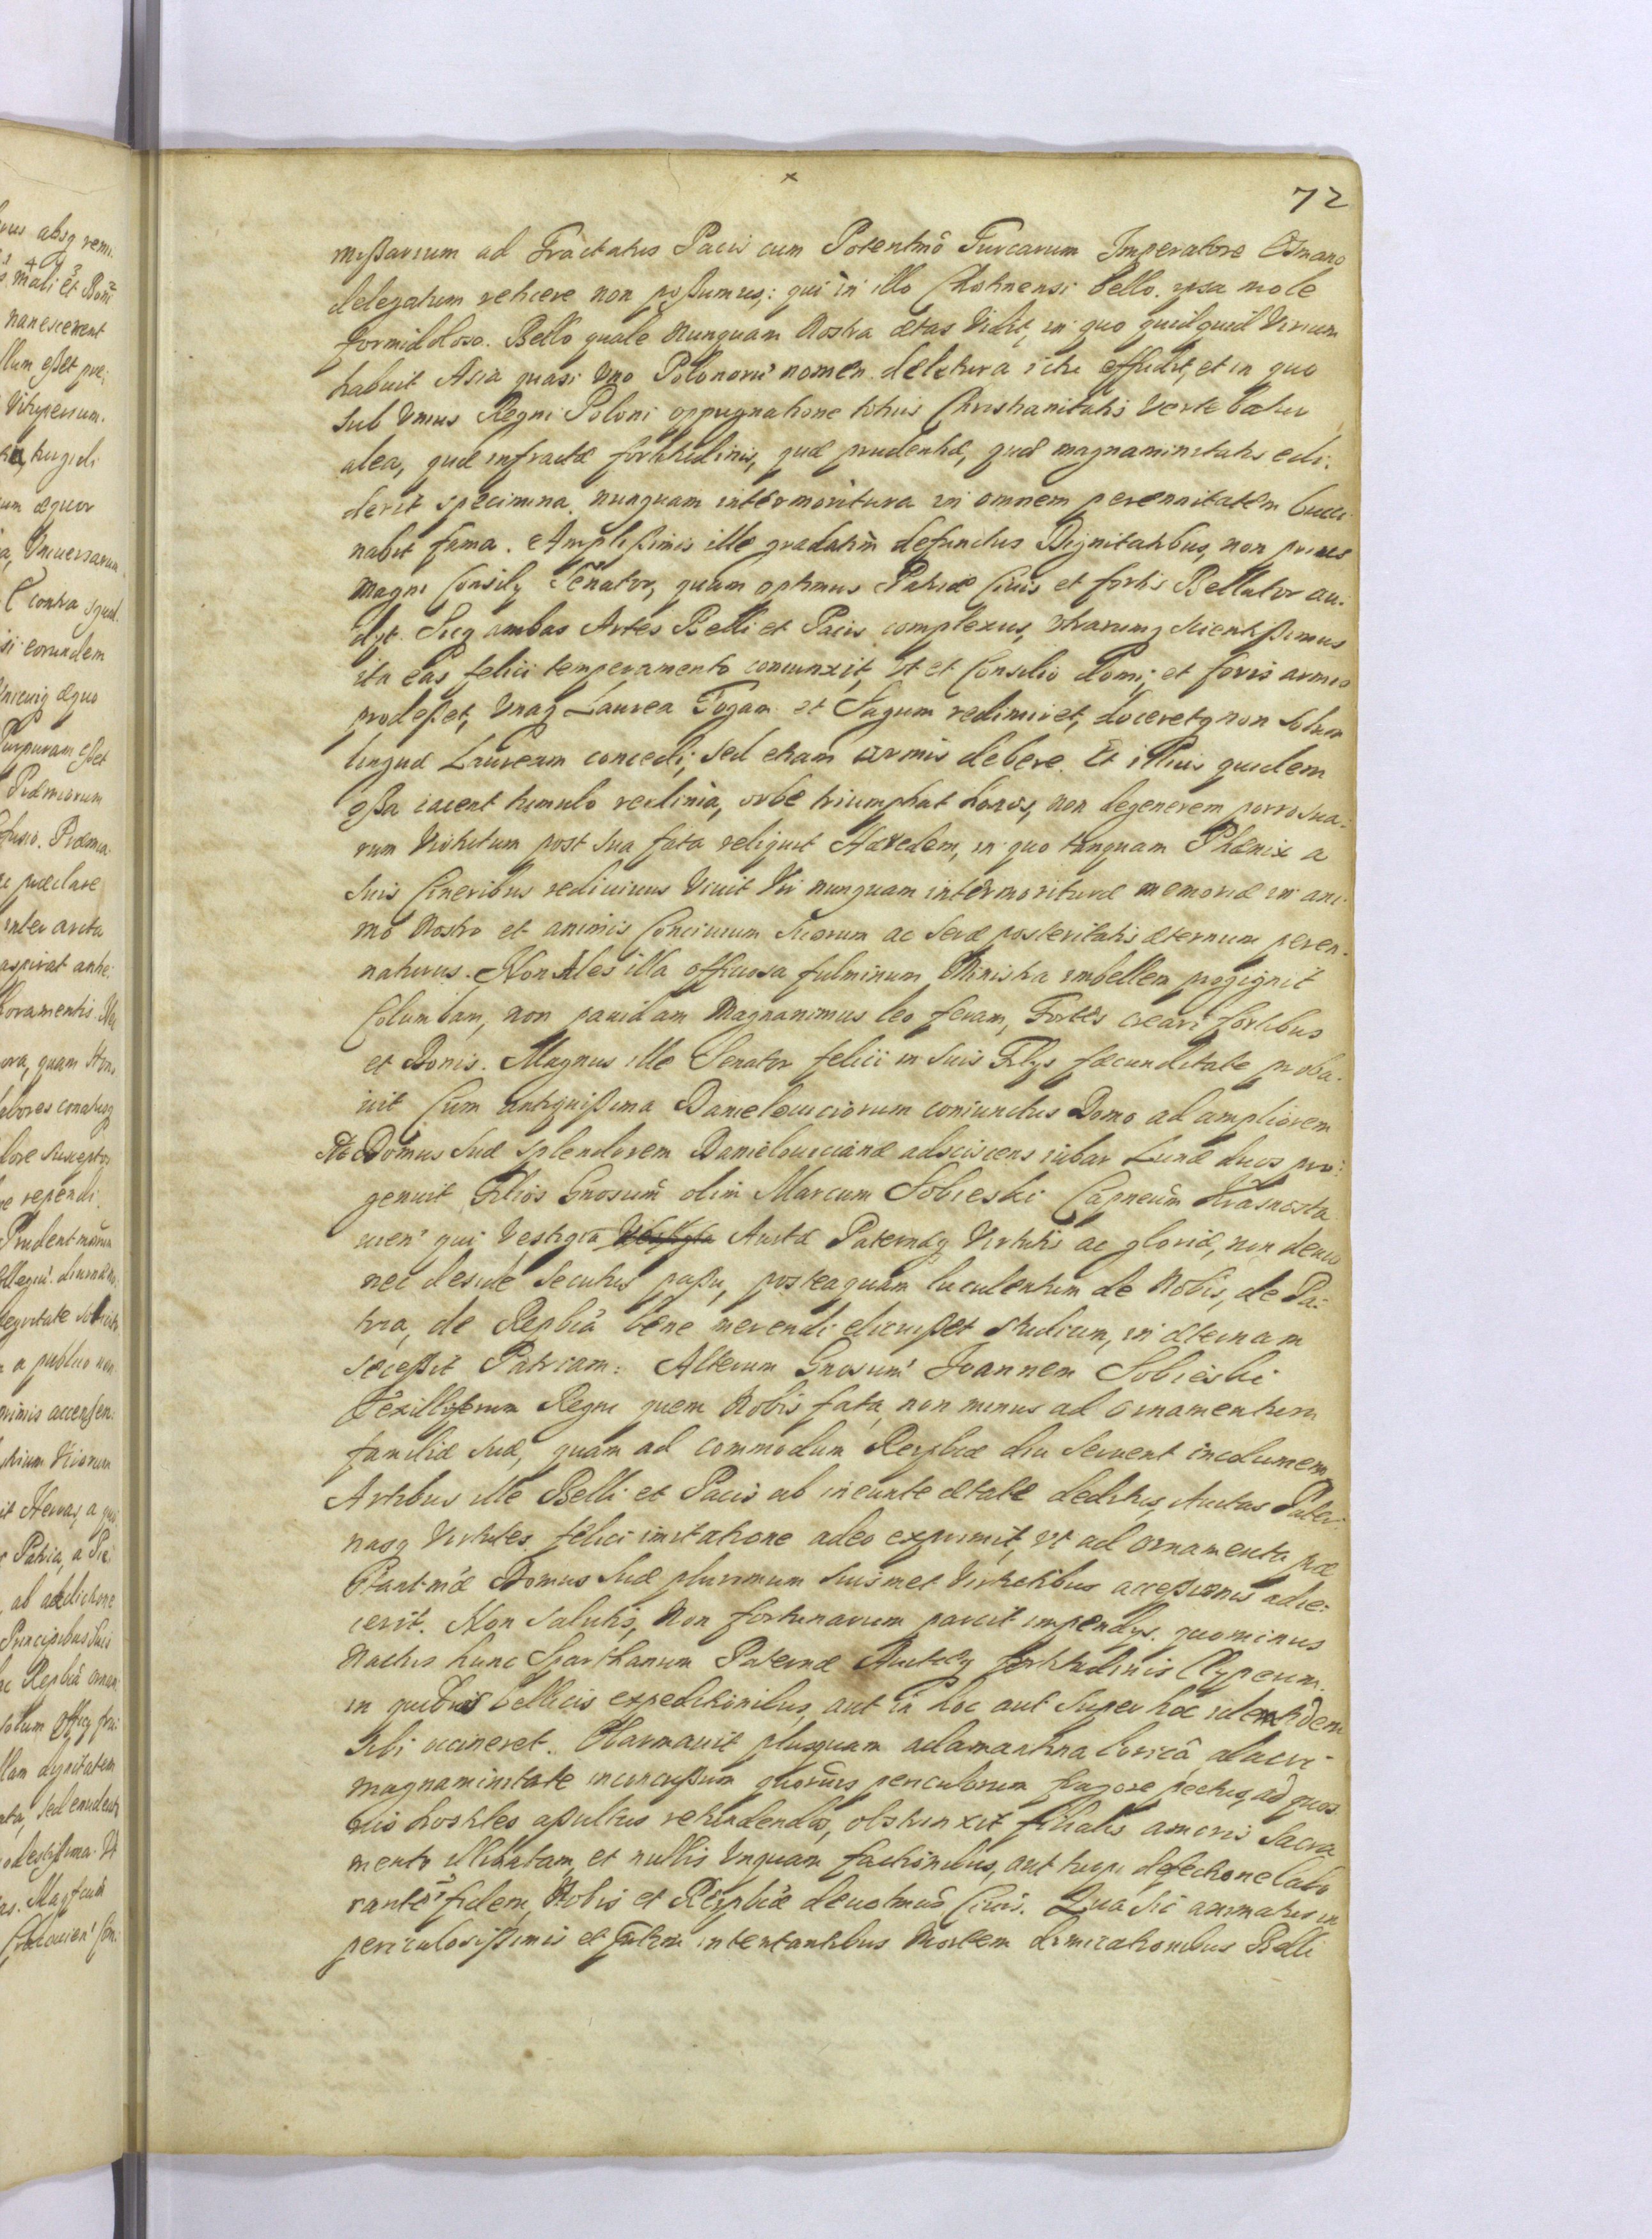 72
mißarium ad Tractatus Pacis cum Potentmō Turcarum Imperatore Osmano
delegatum reticere non poßumus; qui in illo Chotinensi bello ipsa mole
formidoloso. Bello quale nunquam Nostra ætas Vidit, in quo quidquid Virium
habuit Asia quasi Vno Polonorū nomen deletura ictu effudit, et in quo
sub Vnius Regni Poloni oppugnatione totius Christianitatis Vertebatur
alea, quæ infractæ fortitudinis, quæ prudentiæ, quæ magnaminitatis edi:
derit specimina, nunquam intermoritura in omnem perennitatem bucci:
nabit fama. Amplißimis ille gradatim defunctus Dignitatibus, non prius
magni Consilÿ Senator, quam optimus Patriæ Ciuis et fortis Bellator au:
dÿt. Sicq ambas Artes Belli et Pacis complexus, Vtrarumq scientißimus
ita eas felici temperamento coniunxit, Vt et Consilio domi, et foris armis
prodeßet, Vnaq Laurea Togam et Sagum redimiret, doceretq non Solum
linguæ Lauream concedi, sed etiam armis debere. Et illius quidem
oßa iacent tumulo reclinia, orbe triumphat honos, non degenerem porro sua:
rum Virtutum post sua fata reliquit Hæredem, in quo tanquam Phænix a
suis Cineribus rediuiuus Viuit Vir nunquam intermorituræ memoriæ in ani:
mo Nostro et animis Conciuium Suorum ac seræ posteritatis æternum peren:
naturus. Non Ales illa officiosa fulminum Ministra imbellem progignit
Columbam, non pauidam Magnanimus leo feram, Fortes creari fortibus
et Bonis. Magnus ille Senator felici in suis Filÿs fæcunditate proba:
uit Cum antiquißima Danielouiciorum coniunctus Domo ad ampliorem
Domus suæ splendorem Danielouicianæ adsciscens iubar Lunæ duos pro:
genuit Filios Gnosum olim Marcum Sobieski Capneūm Krasnosta
uien' qui Vestigia Vestigia Auitæ Paternæq Virtutis ac gloriæ, non deuio
nec deside secutus paßu, posteaquam luculentum de Nobis, de Pa:
tria, de Repbcā bene merendi dicaßet studium, in æternam
seceßit Patriam: Alterum Gnosum' Joannem Sobieski
Vexilliferum Regni quem Nobis fata non minus ad ornamentum
familiæ suæ, quam ad commodum Reipbcæ diu seruent incolumem
Artibus ille Belli et Pacis ab ineunte ætate deditus, Auitas Pater:
nasq Virtutes felici imitatione adeo exprimit, Vt ad ornamenta præ
stant-mæ Domus suæ plurimum suismet Virtutibus acceßionis adie:
cerit. Non salutis, Non fortunarum parcit impendÿs. quominus
Nactus hunc Sparthanum Paternæ Auitæq fortitudinis Clypeum.
in quibus bellicis expeditionibus, aut in hoc aut super hoc identidem
sibi occineret. Obarmauit plusquam adamantina loricâ, alacri
magnaminitate inconcußum quoruis periculorum fragore pectus, ad quos
uis hostiles aßultus retundendos, obstrinxit filialis amoris Sacra
mento illibatam, et nullis Vnquam factionibus, aut turpi defectione labo
rantē fidem, Nobis et Reipbcæ deuotmūs Ciuis. Qua sic animatus in
periculosißimis et intentantibus Mortem dimicationibus Belli